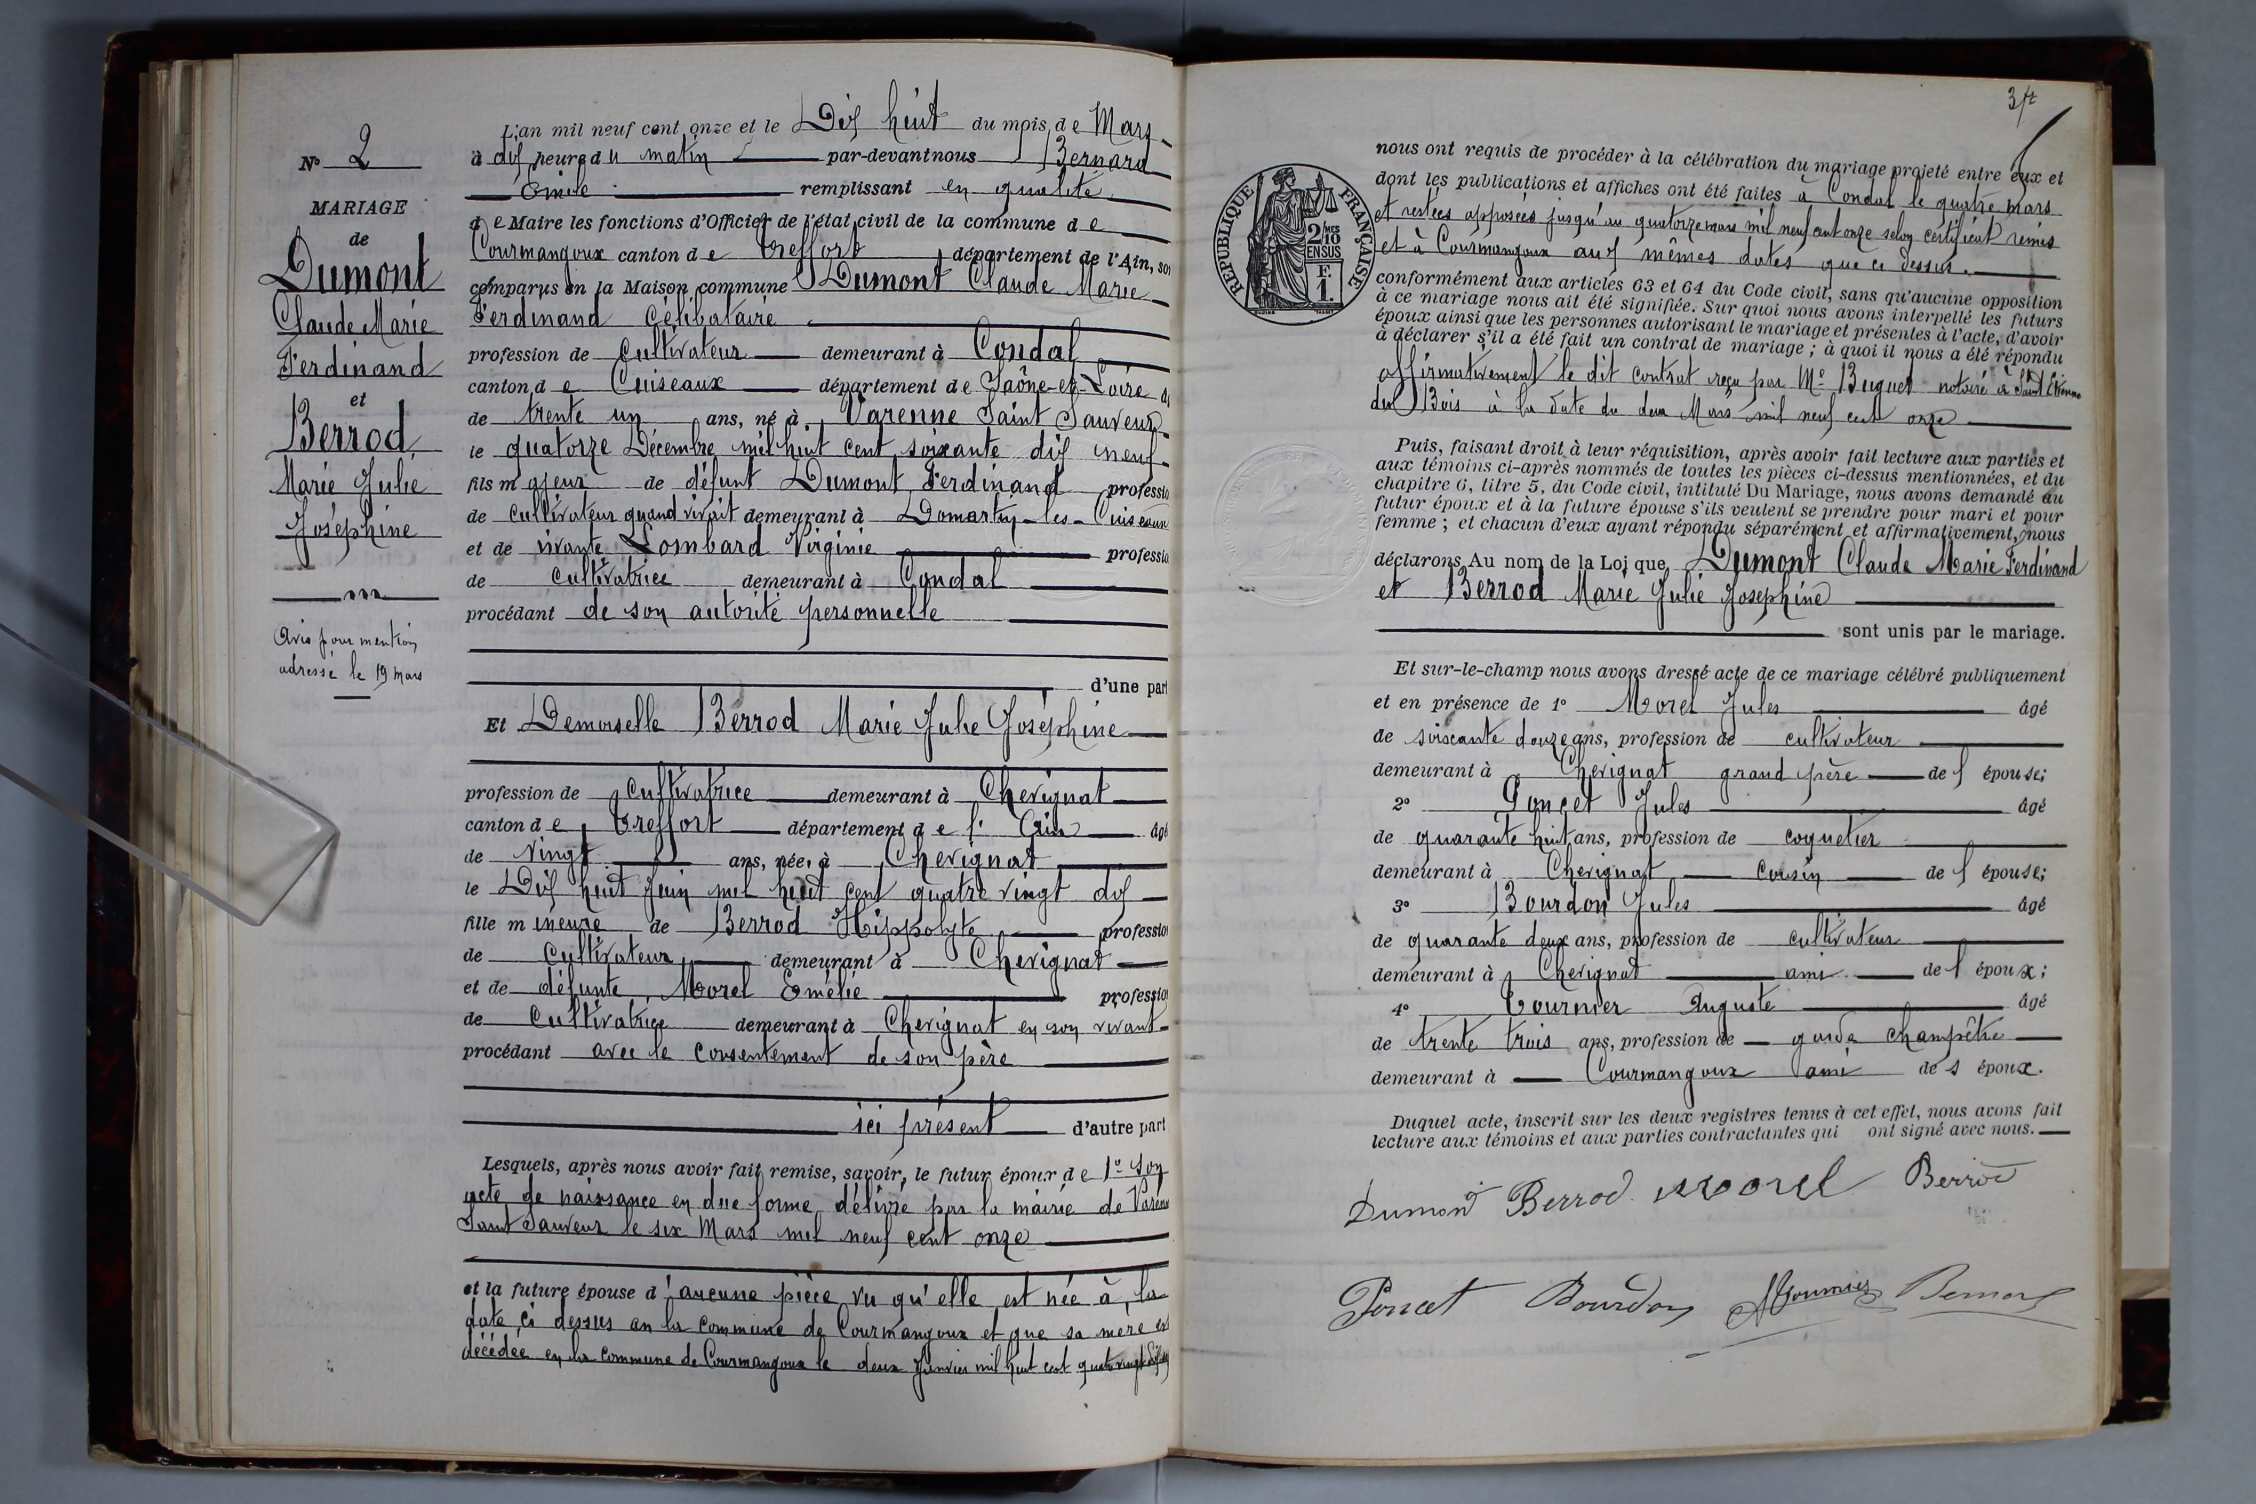 N° 2
MARIAGE
de
Dumont
Claude Marie
Ferdinand
et
Berrod
Marie Julie
Joséphine
Avis pour mention
adressé le 19 mars
L'an mil neuf cent onze et le Dix huit du mois de Mars
à dix heure du matin par-devant nous Bernard
Emile remplissant en qualité
de Maire les fonctions d'Officier de l'état civil de la commune de
Courmangoux canton de Treffort département de l'Ain, son
comparus en la Maison commune Dumont Claude Marie
Ferdinand Célibataire
profession de cultivateur demeurant à Condal
canton de Cuiseaux département de Saône-et-Loire
de trente un ans, né à Varenne Saint Sauveur
le quatorze Décembre mil huit cent soixante dix neuf
fils majeur de défunt Dumont Ferdinand professio
de cultivateur quand vivait demeurant à Domartin-les-Cuiseaux
et de vivante Lombard Virginie professio
de cultivatrice demeurant à Condal
procédant de son autorité personnelle
d'une part
Et Demoiselle Berrod Marie Julie Joséphine
profession de cultivatrice demeurant à Chevignat
canton de Treffort département de l'Ain âgé
de vingt ans, née à Chevignat
le Dix huit Juin mil huit cent quatre vingt dix
fille mineure de Berrod Hippolyte profession
de cultivateur demeurant à Chevignat
et de défunte Morel Emélie profession
de cultivatrice demeurant à Chevignat en son vivant
procédant avec le consentement de son père
ici présent d'autre part
Lesquels, après nous avoir fait remise, savoir, le futur époux de 1° son
acte de naissance en due forme délivré par la mairie de Varenne
Saint Sauveur le six Mars mil neuf cent onze
et la future épouse d'aucune pièce vu qu'elle est née à la
date ci dessus en la commune de Courmangoux et que sa mère est
décédée en la commune de Courmangoux le deux Janvier mil huit cent quatre vingt
REPUBLIQUE FRANÇAISE
2 MES 10 EN SUS
F. 1.
nous ont requis de procéder à la célébration du mariage projeté entre eux et
dont les publications et affiches ont été faites à Condal le quatre mars
et restées apposées jusqu'au quatorze mars mil neuf cent onze selon certificat remis
et à Courmangoux aux mêmes dates que ci dessus.
conformément aux articles 63 et 64 du Code civil, sans qu'aucune opposition
à ce mariage nous ait été signifiée. Sur quoi nous avons interpellé les futurs
époux ainsi que les personnes autorisant le mariage et présentes à l'acte, d'avoir
à déclarer s'il a été fait un contrat de mariage ; à quoi il nous a été répondu
affirmativement le dit contrat reçu par Me Buguet notaire à Saint Etienne
du Bois à la date du deux Mars mil neuf cent onze
Puis, faisant droit à leur réquisition, après avoir fait lecture aux parties et
aux témoins ci-après nommés de toutes les pièces ci-dessus mentionnées, et du
chapitre 6, titre 5, du Code civil, intitulé Du Mariage, nous avons demandé au
futur époux et à la future épouse s'ils veulent se prendre pour mari et pour
femme ; et chacun d'eux ayant répondu séparément et affirmativement, nous
déclarons Au nom de la Loi que Dumont Claude Marie Ferdinand
et Berrod Marie Julie Josephine
sont unis par le mariage.
Et sur-le-champ nous avons dressé acte de ce mariage célébré publiquement
et en présence de 1° Morel Jules âgé
de soixante douze ans, profession de cultivateur
demeurant à Chevignat grand père de l'épouse;
2° Poncet Jules âgé
de quarante huit ans, profession de coquetier
demeurant à Chevignat cousin de l'épouse;
3° Bourdon Jules âgé
de quarante deux ans, profession de cultivateur
demeurant à Chevignat ami de l'époux;
4° Tournier Auguste âgé
de trente trois ans, profession de garde champêtre
demeurant à Courmangoux ami de l'époux.
Duquel acte, inscrit sur les deux registres tenus à cet effet, nous avons fait
lecture aux témoins et aux parties contractantes qui ont signé avec nous.
Dumont Berrod Morel Berrod
Poncet Bourdon ATournier Bernard